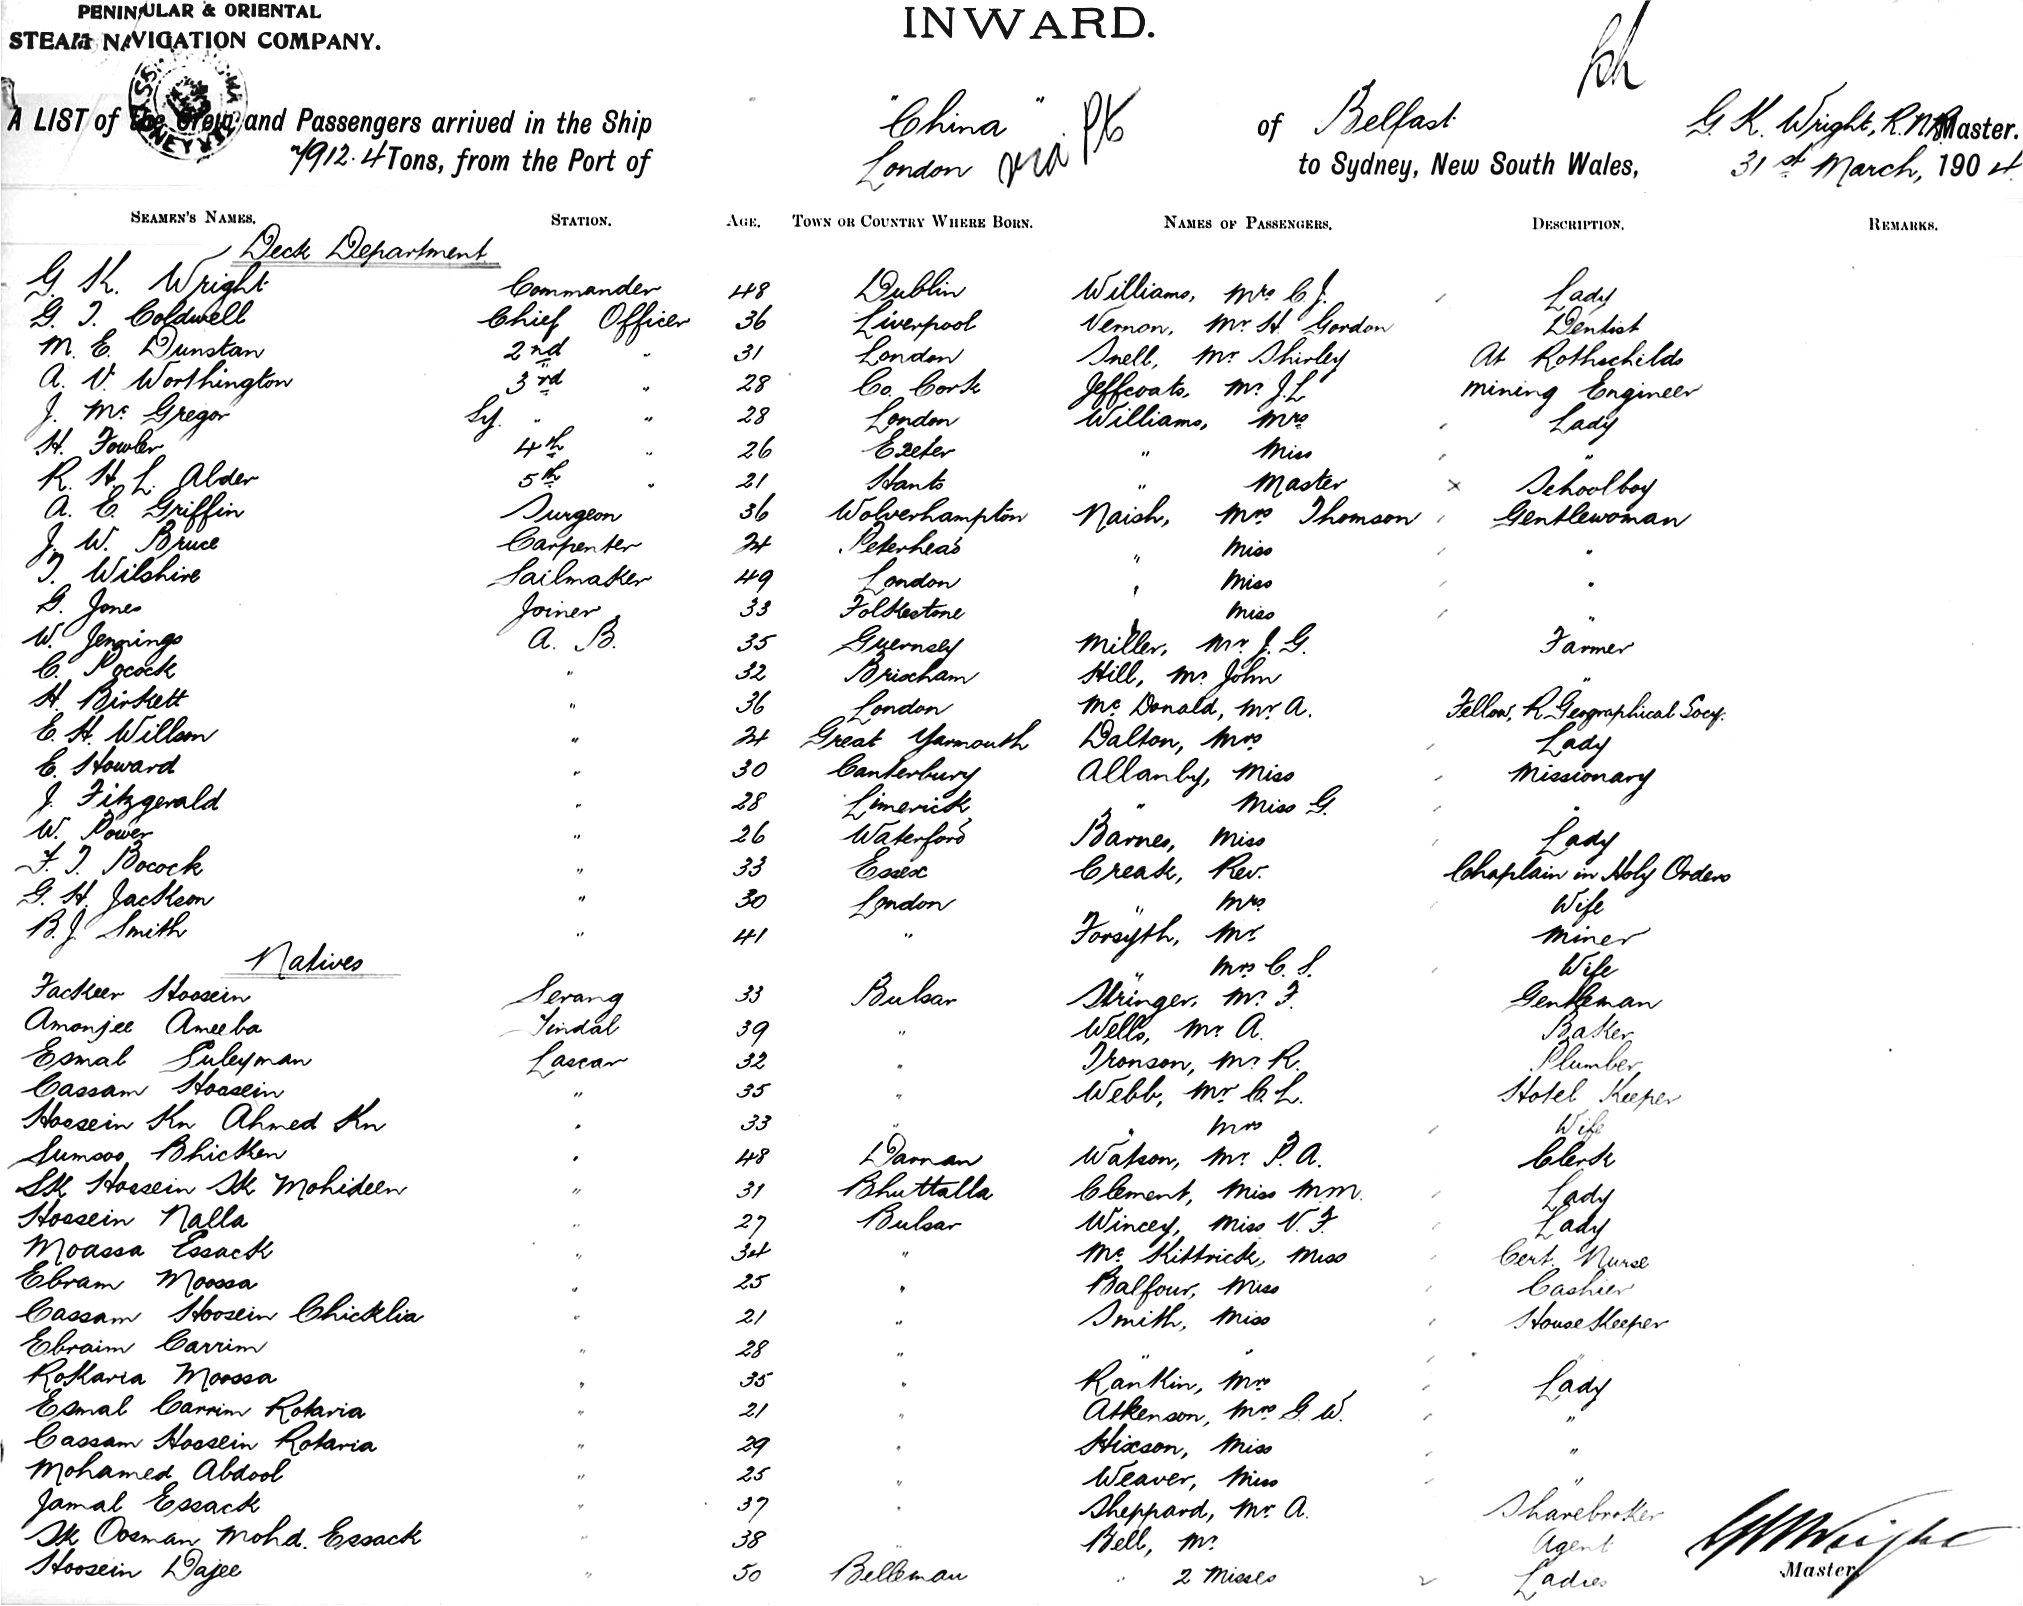 PENINSULAR & ORIENTAL
STEAM NAVIGATION COMPANY.
INWARD.
A LIST of the Crew and Passengers arrived in the Ship "China" of Belfast G. K. Wright, R.N.R. Master.
7912.4 Tons, from the Port of London via Pts to Sydney, New South Wales, 31st March, 1904.
SEAMEN'S NAMES. STATION. AGE. TOWN OR COUNTRY WHERE BORN. NAMES OF PASSENGERS. DESCRIPTION. REMARKS.
Deck Department
G. K. Wright Commander 48 Dublin Williams, Mrs C. J. Lady
G. T. Coldwell Chief Officer 36 Liverpool Vernon, Mr H. Gordon Dentist
M. E. Dunstan 2nd " 31 London Snell, Mr Shirley At Rothschilds
A. V. Worthington 3rd " 28 Co. Cork Jeffcoats, Mr J. L Mining Engineer
J. McGregor Sy. " " 28 London Williams, Mrs Lady
H. Fowler 4th " 26 Exeter " Miss "
R. H. L. Alder 5th " 21 Hants " Master x Schoolboy
A. E. Griffin Surgeon 36 Wolverhampton Naish, Mrs Thomson Gentlewoman
J. W. Bruce Carpenter 24 Peterhead " Miss "
T. Wilshire Sailmaker 49 London " Miss "
G. Jones Joiner 33 Folkestone Miss "
W. Jennings A. B. 35 Guernsey Miller, Mr J. G. Farmer
C. Pocock " 32 Brixham Hill, Mr John "
H. Birkett " 36 London McDonald, Mr A. Fellow, R. Geographical Socy.
E. H. Willson " 24 Great Yarmouth Dalton, Mrs Lady
E. Howard " 30 Canterbury Allanby, Miss Missionary
J. Fitzgerald " 28 Limerick " Miss G. "
W. Power " 26 Waterford Barnes, Miss Lady
F. T. Bocock " 33 Essex Creak, Rev. Chaplain in Holy Orders
G. H. Jackson " 30 London " Mrs Wife
B. J. Smith " 41 " Forsyth, Mr Miner
Natives " Mrs C. S. Wife
Fackeer Hoosein Serang 33 Bulsar Stringer, Mr F. Gentleman
Amonjee Ameeba Tindal 39 " Wells, Mr A. Baker
Esmal Suleyman Lascar 32 " Tronson, Mr R. Plumber
Cassam Hoosein " 35 " Webb, Mr C. L. Hotel Keeper
Hoosein Kn Ahmed Kn " 33 " " Mrs Wife
Sumsoo Bhicken " 48 Daman Watson, Mr P. A. Clerk
SK Hoosein SK Mohideen " 31 Bhuttalla Clement, Miss M.M. Lady
Hoosein Nalla " 27 Bulsar Wincey, Miss V. F. Lady
Moassa Essack " 34 " McKittrick, Miss Cert. Nurse
Ebram Moossa " 25 " Balfour, Miss Cashier
Cassam Hoosein Chicklia " 21 " Smith, Miss House Keeper
Ebraim Carrim " 28 " " " "
Rokaria Moossa " 35 " Rankin, Mrs Lady
Esmal Carrim Rotaria " 21 " Atkenson, Mrs G. W. "
Cassam Hoosein Rotaria " 29 " Hixson, Miss "
Mohamed Abdool " 25 " Weaver, Miss "
Jamal Essack " 37 " Sheppard, Mr A. Sharebroker
Sk Oosman Mohd. Essack " 38 " Bell, Mr Agent
Hoosein Dajee " 50 Belleman " 2 Misses Ladies
G K Wright
Master